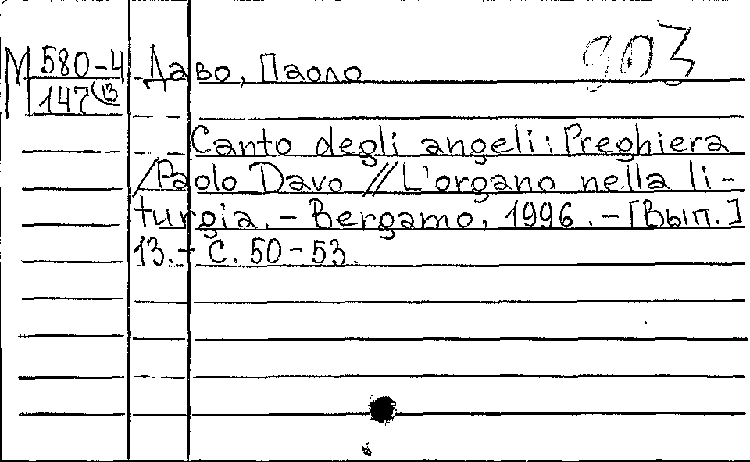 М 580-4 Даво, Паоло 903
147 (13)
Canto degli angeli: Preghiera
/Paolo Davo // L'organo nella li-
turgia. - Bergamo, 1996. - [Вып.]
13. - С. 50-53.